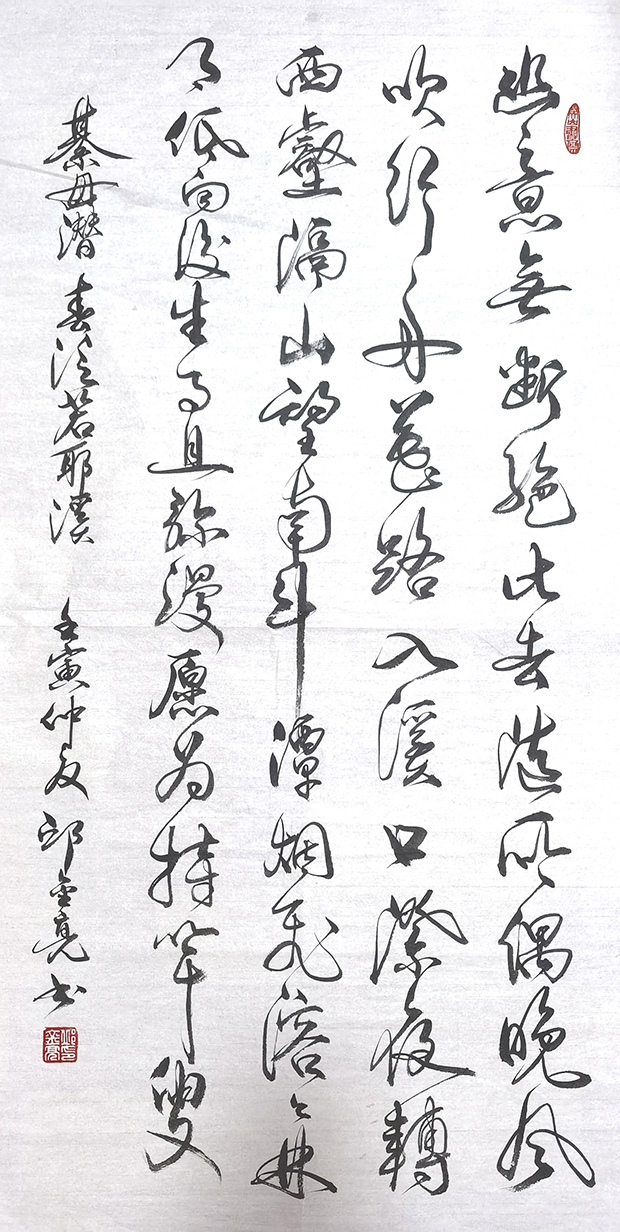 幽意無斷絶此去隨所偶晚风
吹行舟花路入溪口際夜轉
西壑隔山望南斗潭烟飛溶々林
月低向後生事且弥漫愿为持竿叟
綦毋潛 春泛若耶溪 壬寅仲夏 邱金亮书